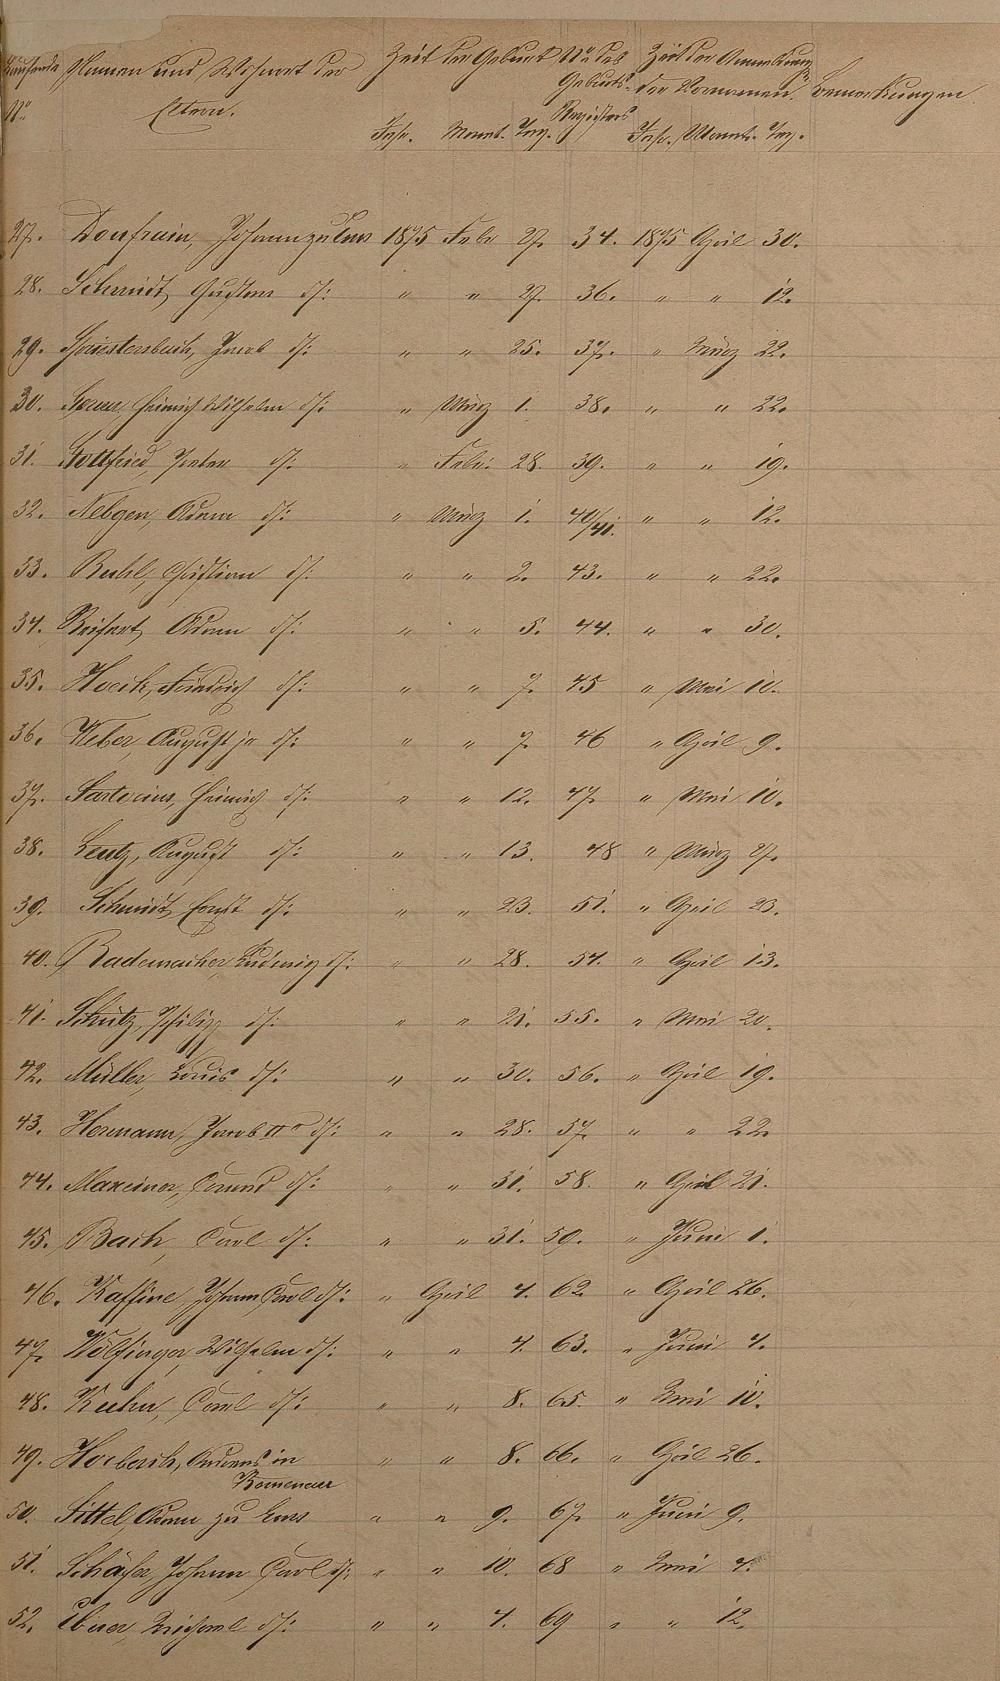 Laufende Namen und Wohnort der Zeit der Geburt No des Zeit der Anmeldung
No Eltern. Geburts- der Vornamen. Bemerkungen
Jahr. Monat. Tag. Registers Jahr. Monat. Tag.
27. Donfrain, Johann zu Ems 1875 Febr 27. 34. 1875 April 30.
28. Schmidt, Gustav ds: " " 27. 36. " " 12.
29. Jacob ds: " " 25. 37. " März 22.
30. Heinrich Wilhelm ds: " März 1. 38. " " 22.
31. Gottfried, Peter ds: " Febr: 28. 39. " " 19.
32. Nebgen, Adam ds: " März 1. 40/41. " " 12.
33. Ruhl, Christian ds: " " 2. 43. " " 22.
34. Adam ds: " " 5. 44. " " 30.
35. Friedrich ds: " " 7. 45 " Mai 10.
36. Weber, August jr ds: " " 7. 46 " April 9.
37. Sartorius, Heinrich ds: " " 12. 47. " Mai 10.
38. Lentz, August ds: " " 13. 48 " März 27.
39. Schmidt, Ernst ds: " " 23. 51. " April 23.
40. Rademacher, Ludwig ds: " " 28. 54. " April 13.
41. Schütz, Philipp ds: " " 21. 55. " Mai 20.
42. Müller, Louis ds: " " 30. 56. " April 19.
43. Hermann, Jacob IIr ds: " " 28. 57. " " 22.
44. Maxeiner, ds: " " 31. 58. " April 21.
45. Bach, Carl ds: " " 31. 59. " Juni 1.
46. Kaffine, Johann Carl ds: " April 4. 62. " April 26.
47. Wölfinger, Wilhelm ds: " " 4. 63. " Juni 4.
48. Kuhn, Carl ds: " " 8. 65. " Mai 10.
49. Horbach, Andreas in " " 8. 66. " April 26.
Kemenau
50. Sittel, Adam zu Ems " " 9. 67. " Juni 9.
51. Schäfer, Johann Carl ds: " " 10. 68 " Mai 4.
52. Michael ds: " " 4. 69 " " 12.